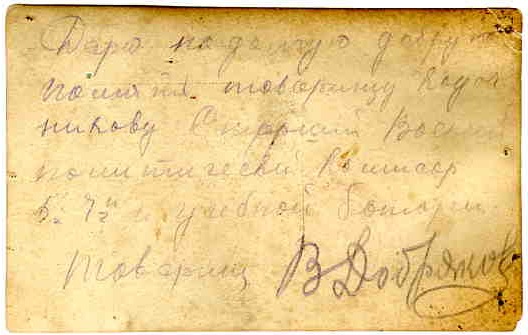 Дарю на долгую добрую
память товарищу Кадоч
никову Старший Военный
политический Комисар
5. 4й и учебной батареи
товарищ В Добряков